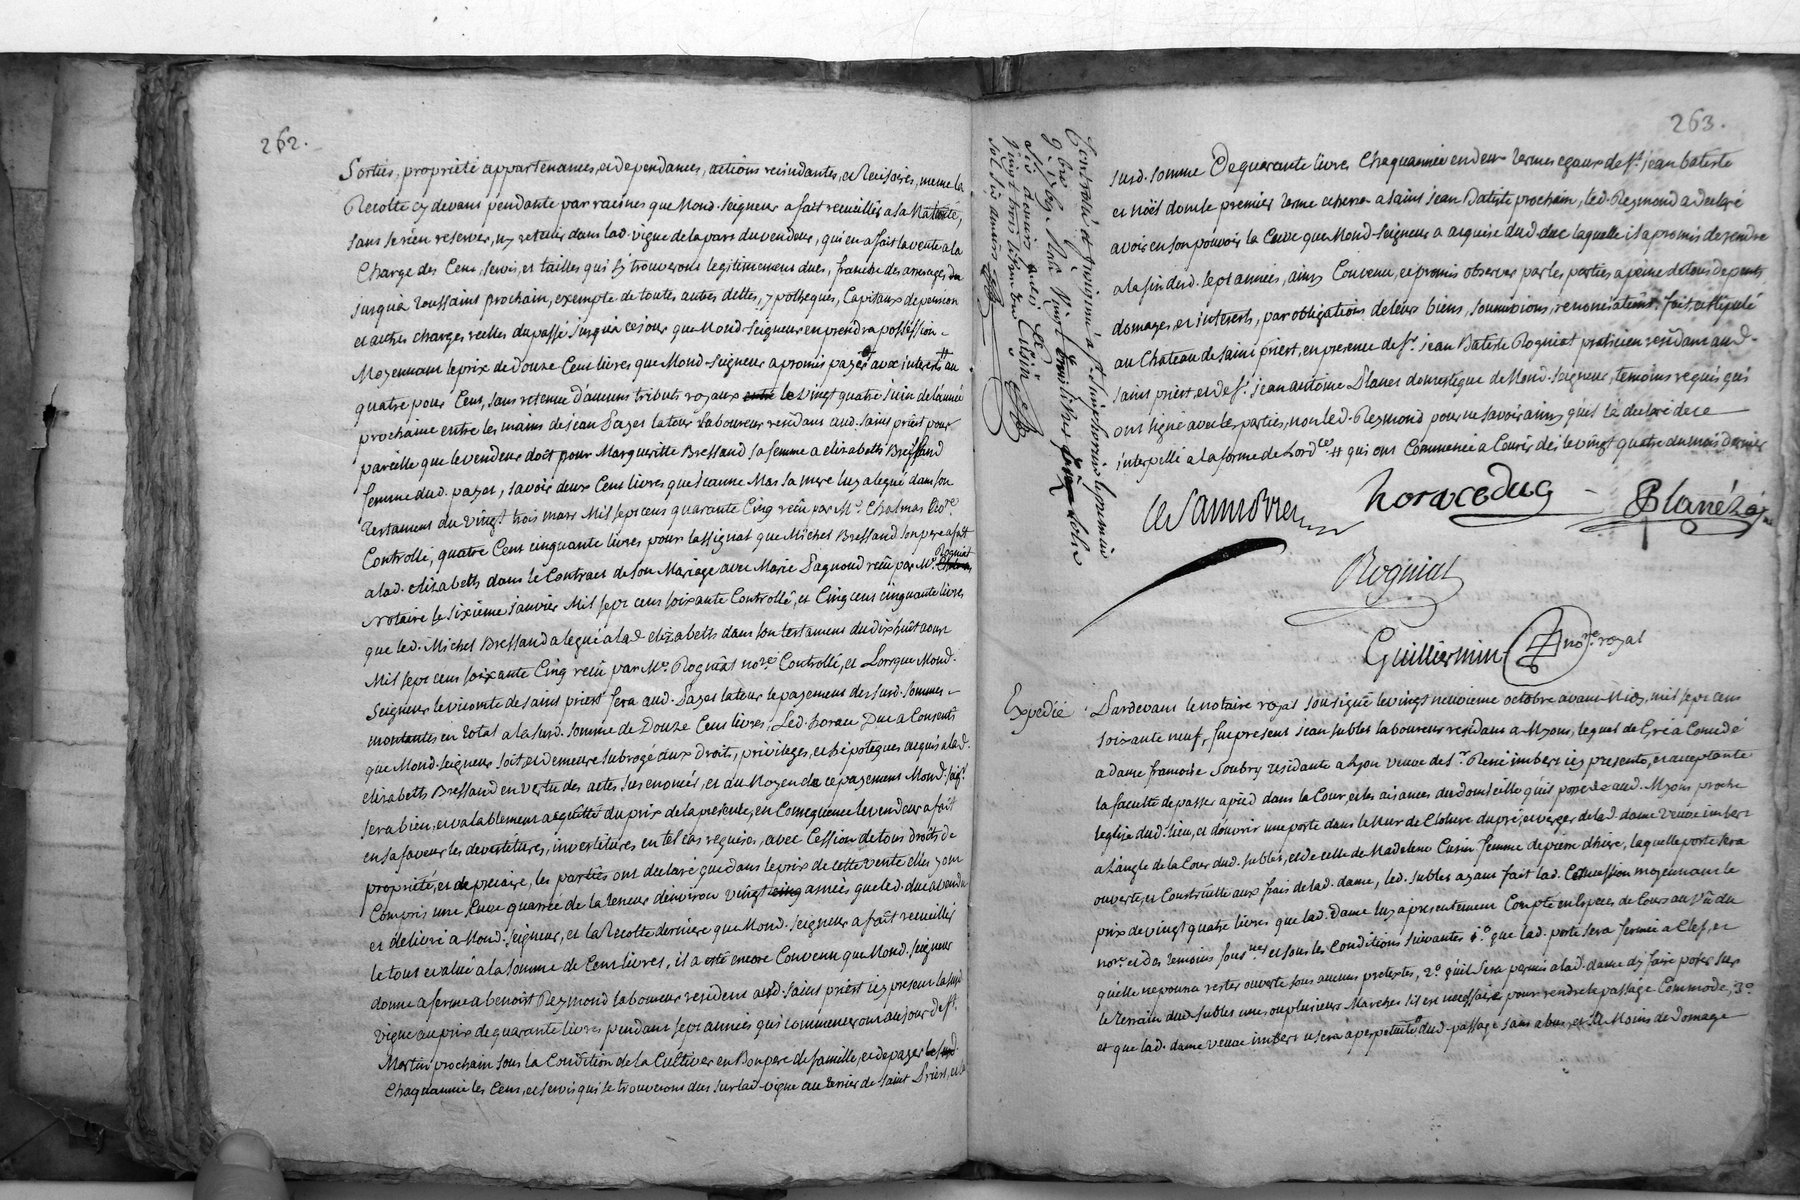 262.
Sorties, propriété appartenances, et dependances, actions rescindantes, et Rescisoires, meme la
Recolte cy devant pendante par racines que Mond. Seigneur a fait recueillir a sa Maturité,
sans se rien reserver, ny retenir dans lad. vigne de la part du vendeur, qui en a fait la vente a la
Charge des Cens, servis, et tailles qui s'y trouveront legitimement dues, franche des arrerages
jusqua Toussaint prochain, exempte de toutes autres dettes, ypotheques, Capitaux de pension
et autres charges reelles du passé jusqua ce jour que Mond. Seigneur en prendra possession
Moyennant le prix de Douze Cent livres que Mond. Seigneur a promis payer aux interets # au
quatre pour Cent, sans retenue d'aucuns tributs royaux le vingt quatre juin de l'année
prochaine entre les mains de jean Payet lateur Laboureur residant aud. Saint priest pour
pareille que le vendeur doit pour Margueritte Bressand sa femme a elizabeth Bressand
femme dud. payet, savoir deux Cent livres que jeanne Mas sa mere luy a legué dans son
Testament du vingt trois mars Mil sept cent quarante Cinq reçû par Me. Chalmas No.re
Controllé, quatre Cent cinquante livres pour l'assignat que Michel Bressand son pere a fait
a lad. elizabeth dans le Contract de son Mariage avec Marie Pagnoud reçû par Me. Rogniat
notaire le sixieme janvier Mil sept cent soixante Controllé, et Cinq cent cinquante livres
que led. Michel Bressand a legué a lad. elizabeth dans son testament du dix huit aoust
Mil sept cent soixante Cinq reçû par Me. Rogniat no.re Controllé, et Lorsque Mond.
Seigneur le vicomte de saint priest fera aud. Payet lateur le payement des susd. sommes
montantes en total a la susd. somme de Douze Cent livres, Led. horace Duc a Consenti
que Mond. Seigneur soit, et demeure subrogé aux droits, privileges, et hÿpoteques acquis a lad.
elizabeth Bressand en vertu des actes sus enoncés, et au Moyen de ce payement Mond. seig.r
sera bien, et valablement acquitté du prix de la presente, en Consequence le vendeur a fait
en sa faveur les devestitures, investitures en tel cas requises, avec Cession de tous droits de
propriété, et de precaire, les parties ont declaré que dans le prix de cette vente elles y ont
Compris une Cuve quarrée de la teneur d'environ vingt cinq anneés que led. duc a vendu
et delivré a Mond. seigneur, et la Recolte derniere que Mond. seigneur a fait recueillir
le tout evalué a la somme de Cent livres, il a eté encore Convenu que Mond. Seigneur
donne a ferme a benoist Reymond laboureur resident aud. saint priest icy present la susd.
vigne au prix de quarante livres pendant sept années qui commenceront au jour de St.
Martin prochain sous la Condition de la Cultiver en Bon pere de famille, et de payer
Chaque année les Cens, et servis qui se trouveront dus sur lad. vigne au terrier de Saint Priest, et la
263.
susd. somme De quarante livres Chaque année en deux termes egaux de St. jean batiste
et noël dont le premier terme echerra a saint jean Batiste prochain, led. Reymond a declaré
avoir en son pouvoir la Cuve que Mond. Seigneur a acquise dud. duc laquelle il a promis de rendre
a la fin desd. sept années, ainsy Convenu, et promis observer par les parties a peine de tous depents
domages, et interests, par obligations de leurs biens, soumissions, renonciations fait, et stipulé
au Chateau de saint priest, en presence de Sr. jean Batiste Rogniat praticien residant aud.
saint priest, et de Sr. jean antoine Planet domestique de Mond. Seigneur, temoins requis qui
ont signé avec les parties, non led. Reymond pour ne savoir ainsy quil l'a declaré de ce
interpellé a la forme de Lord.ce # qui ont Commencé a Courir dés le vingt quatre du mois dernier
Controlé et insinué a St. Simphorien le premier
9.bre 1769. Reçu
Six deniers
vingt trois livres
sol six deniers Cusin
horace duc
Planét
Rogniat
Guilliermin no.re royal
Expedié
Pardevant le notaire royal sousigné le vingt neuvieme octobre avant Midy, mil sept cent
soixante neuf, fut present jean sublet laboureur residant a Myons, lequel de Gré a Concedé
a dame francoise Soubry residante a Lyon veuve de Sr. René imbert icy presente, et acceptante
la faculté de passer a pied dans la Cour, et les aisances du domicille qu'il possede aud. Myons proche
l'eglise dud. lieu, et d'ouvrir une porte dans le Mur de Cloture du pré, et verger de lad. dame veuve imbert
a L'angle de la Cour dud. sublet, et de celle de Madelene Cusin femme de pierre dhiere, laquelle porte sera
ouverte, et Construitte aux frais de lad. dame, led. sublet ayant fait lad. Concession moyennant le
prix de vingt quatre livres que lad. Dame luy a presentement Compté en Especes de Cours au Vû du
no.re et des temoins sous.nes et sous les Conditions suivantes 1.o que lad. porte sera fermée a Clef, et
qu'elle ne pourra rester ouverte sous aucuns pretextes, 2.o qu'il sera permis a lad. dame d'y faire poser sur
le terrain dud. sublet une, ou plusieurs Marches s'il est necessaire pour rendre le passage Commode, 3.o
et que lad. dame veuve imbert usera a perpetuité dud. passage sans abus, et le Moins de domage